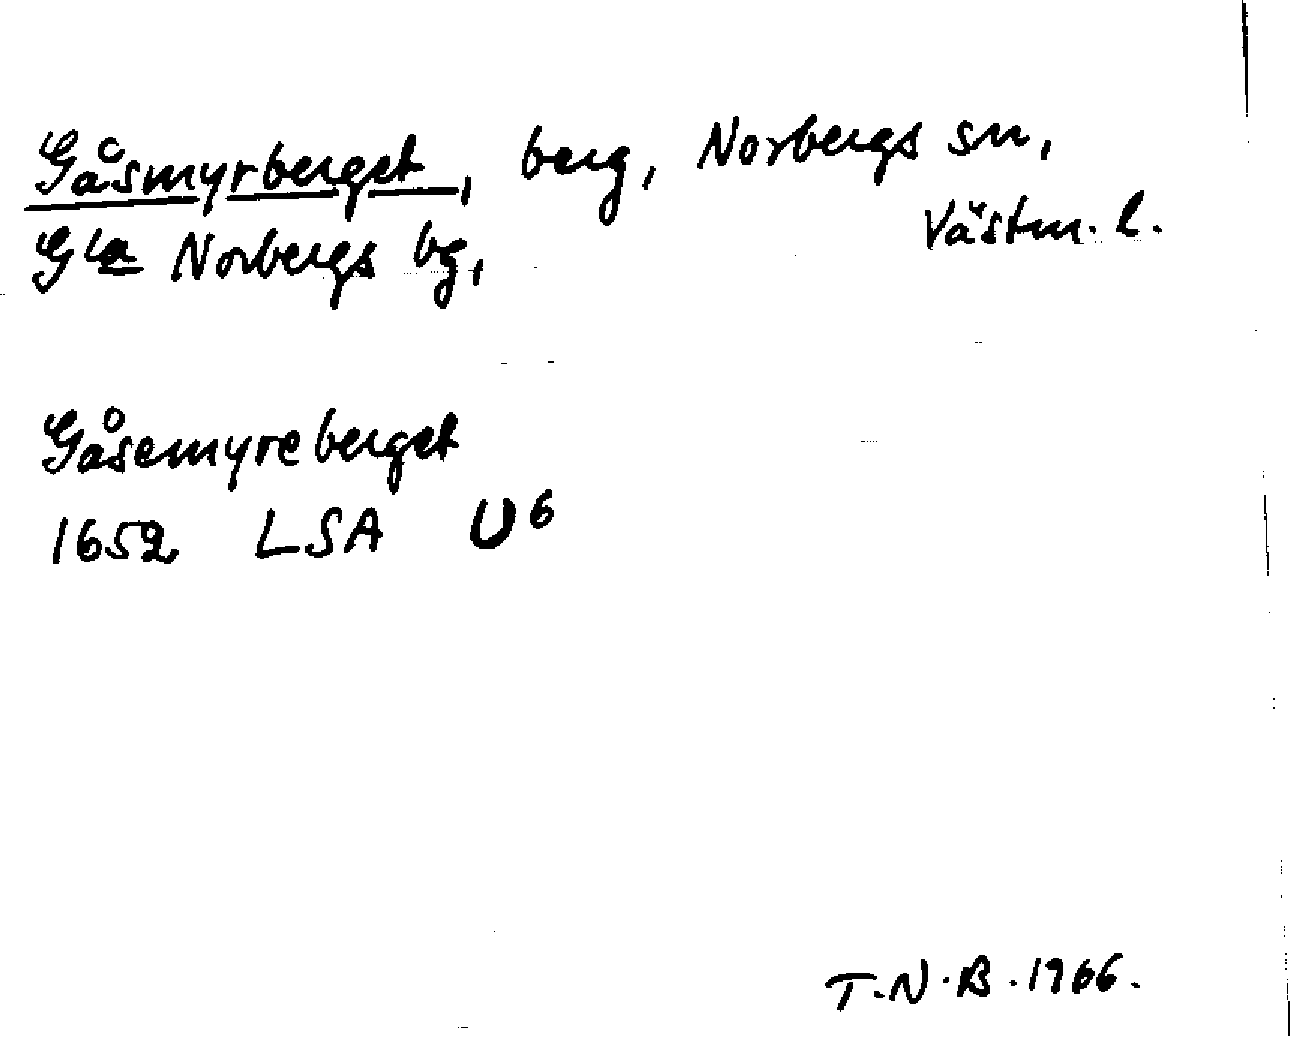 Gåsmyrberget, berg, Norbergs sn,
Västm. l.
Gla Norbergs bg,
Gåsemyreberget
1652 LSA U6
T.N.B. 1966.